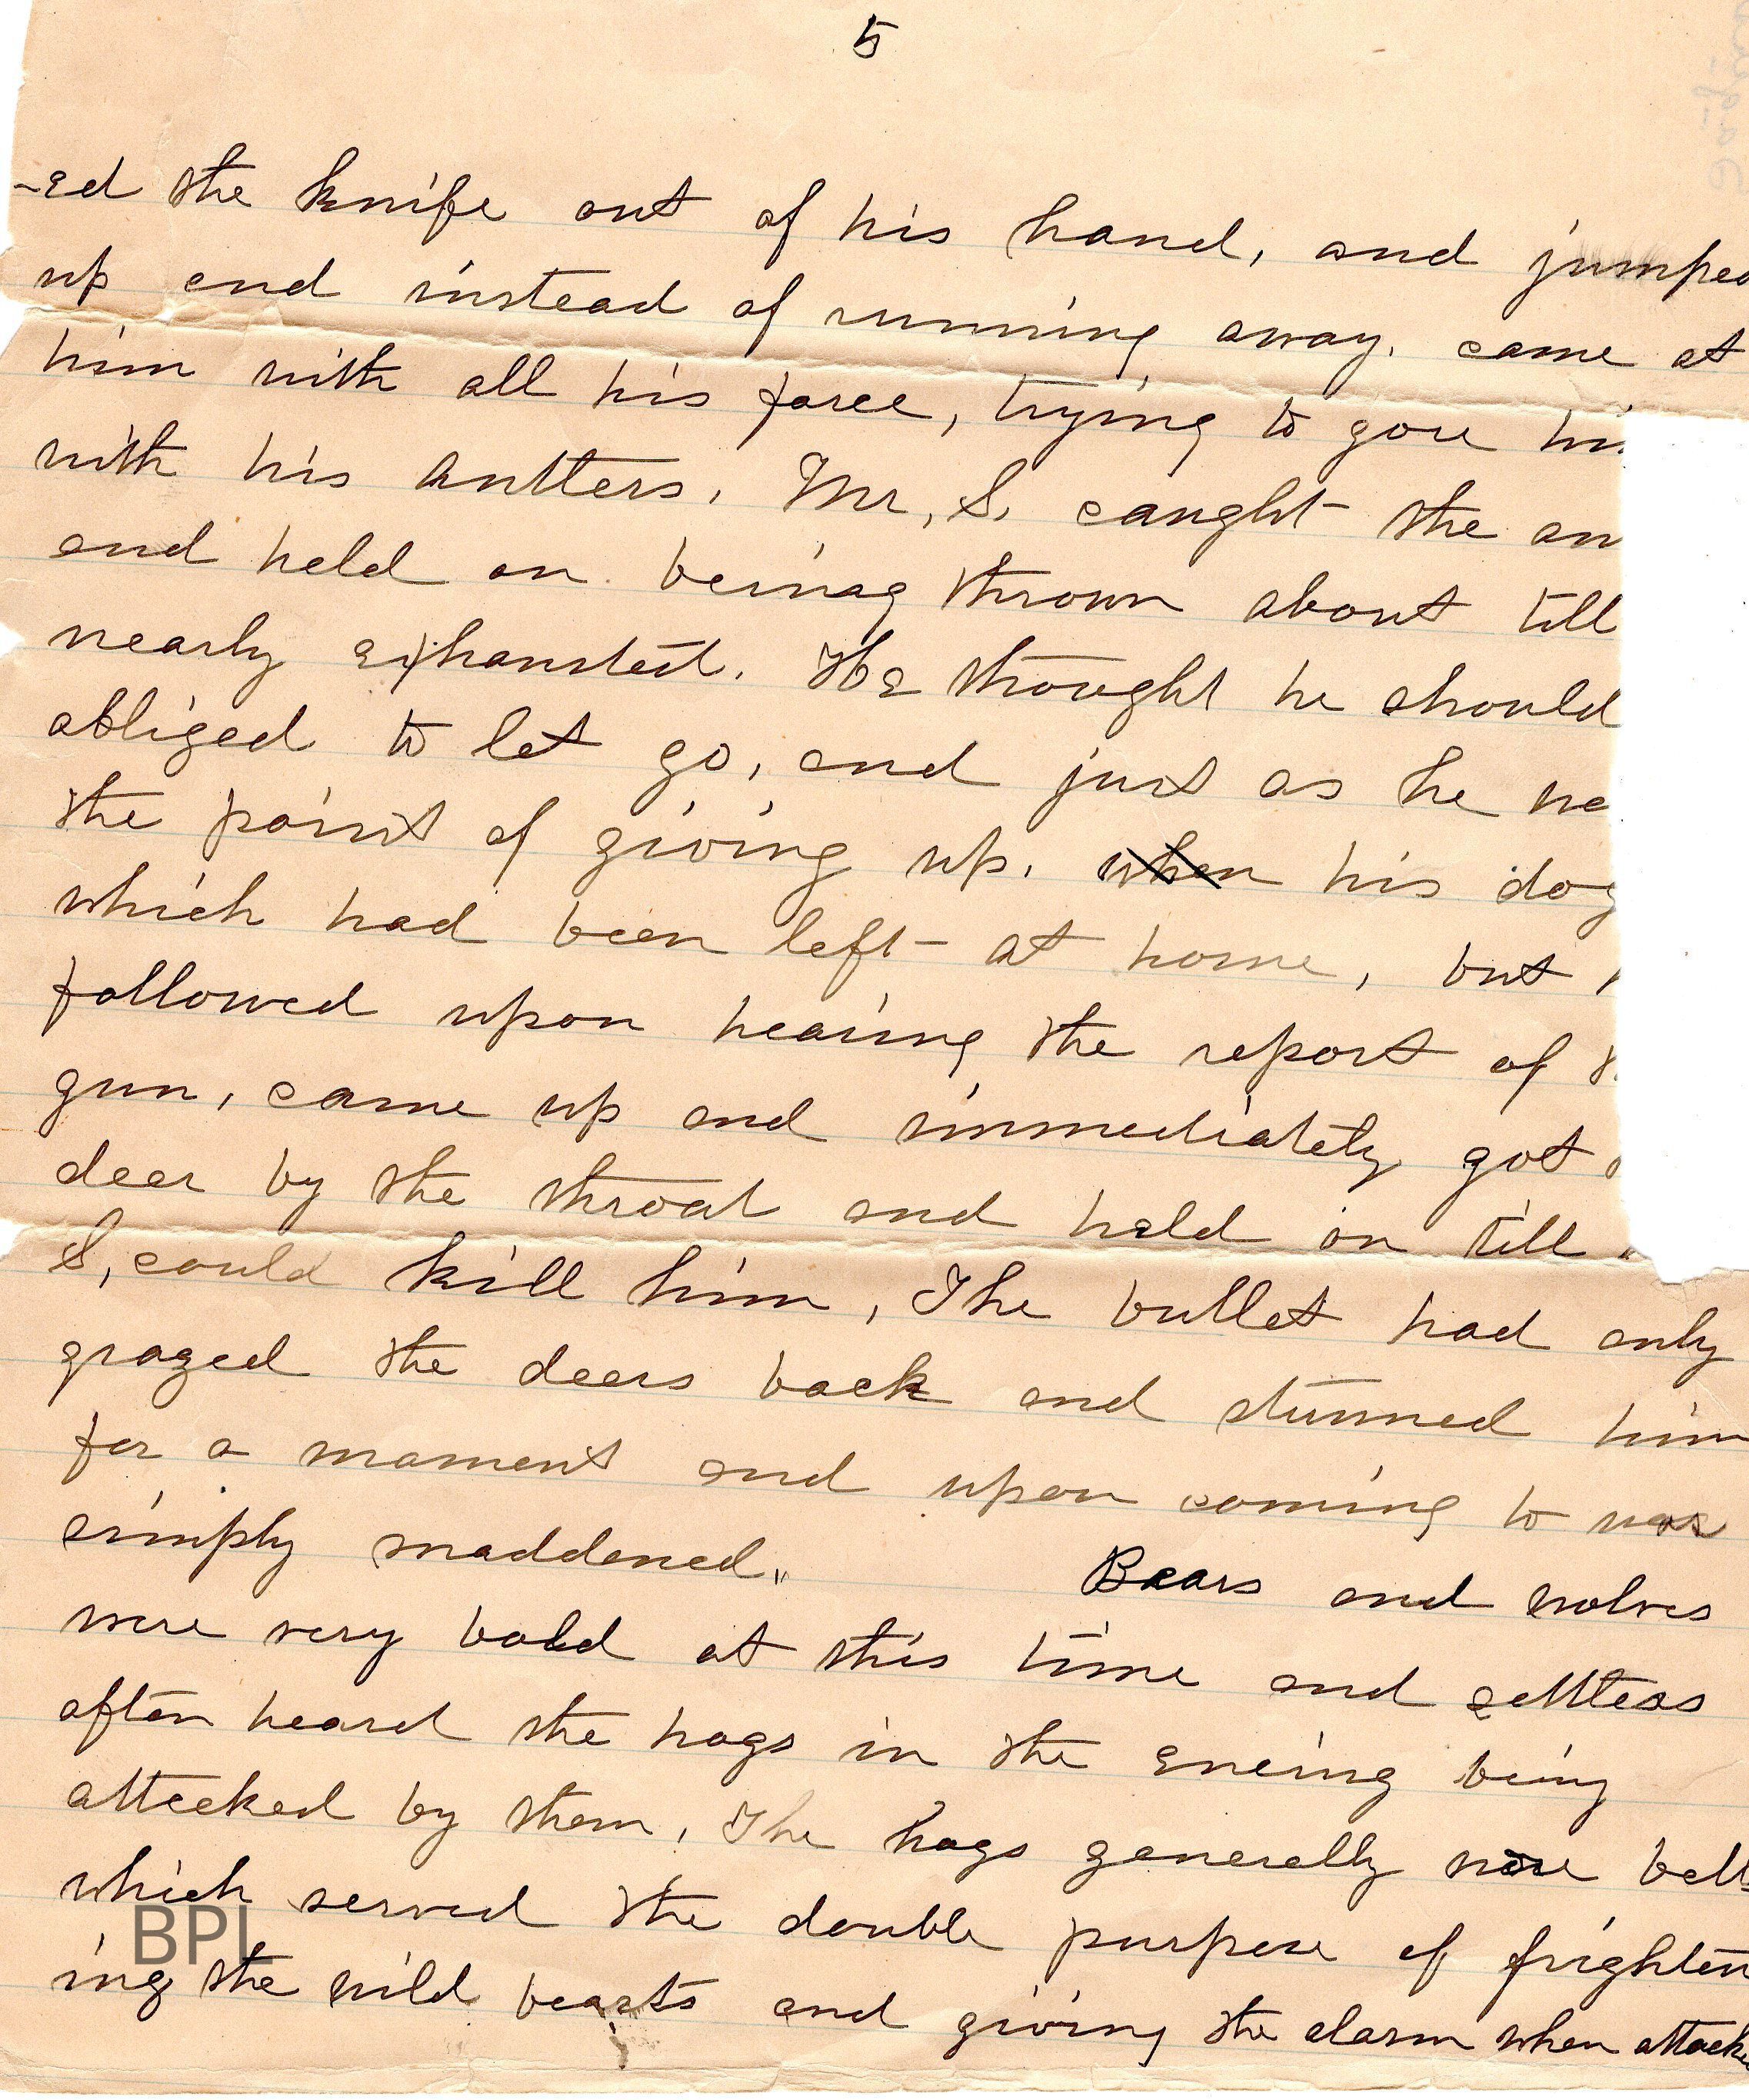 5
-ed the knife out of his hand, and jumped
up and instead of running away, came at
him with all his force, trying to gore hi
with his antlers. Mr, S. caught the an
and held on being thrown about till
nearly exhausted. He thought he should
obliged to let go, and just as he
the point of giving up. when his dog
which had been left at home, but
followed upon hearing the report of
gun, came up and immediately got
deer by the throat and held on till
S, could kill him, The bullet had only
grazed the deers back and stunned him
for a moment and upon coming to was
simply maddened,, Bears and wolves
were very bold at this time and
often heard the hogs in the being
attacked by them, The hogs generally wore bells
which served the double purpose of frighten
ing the wild beasts and giving the alarm when attacke
BPL